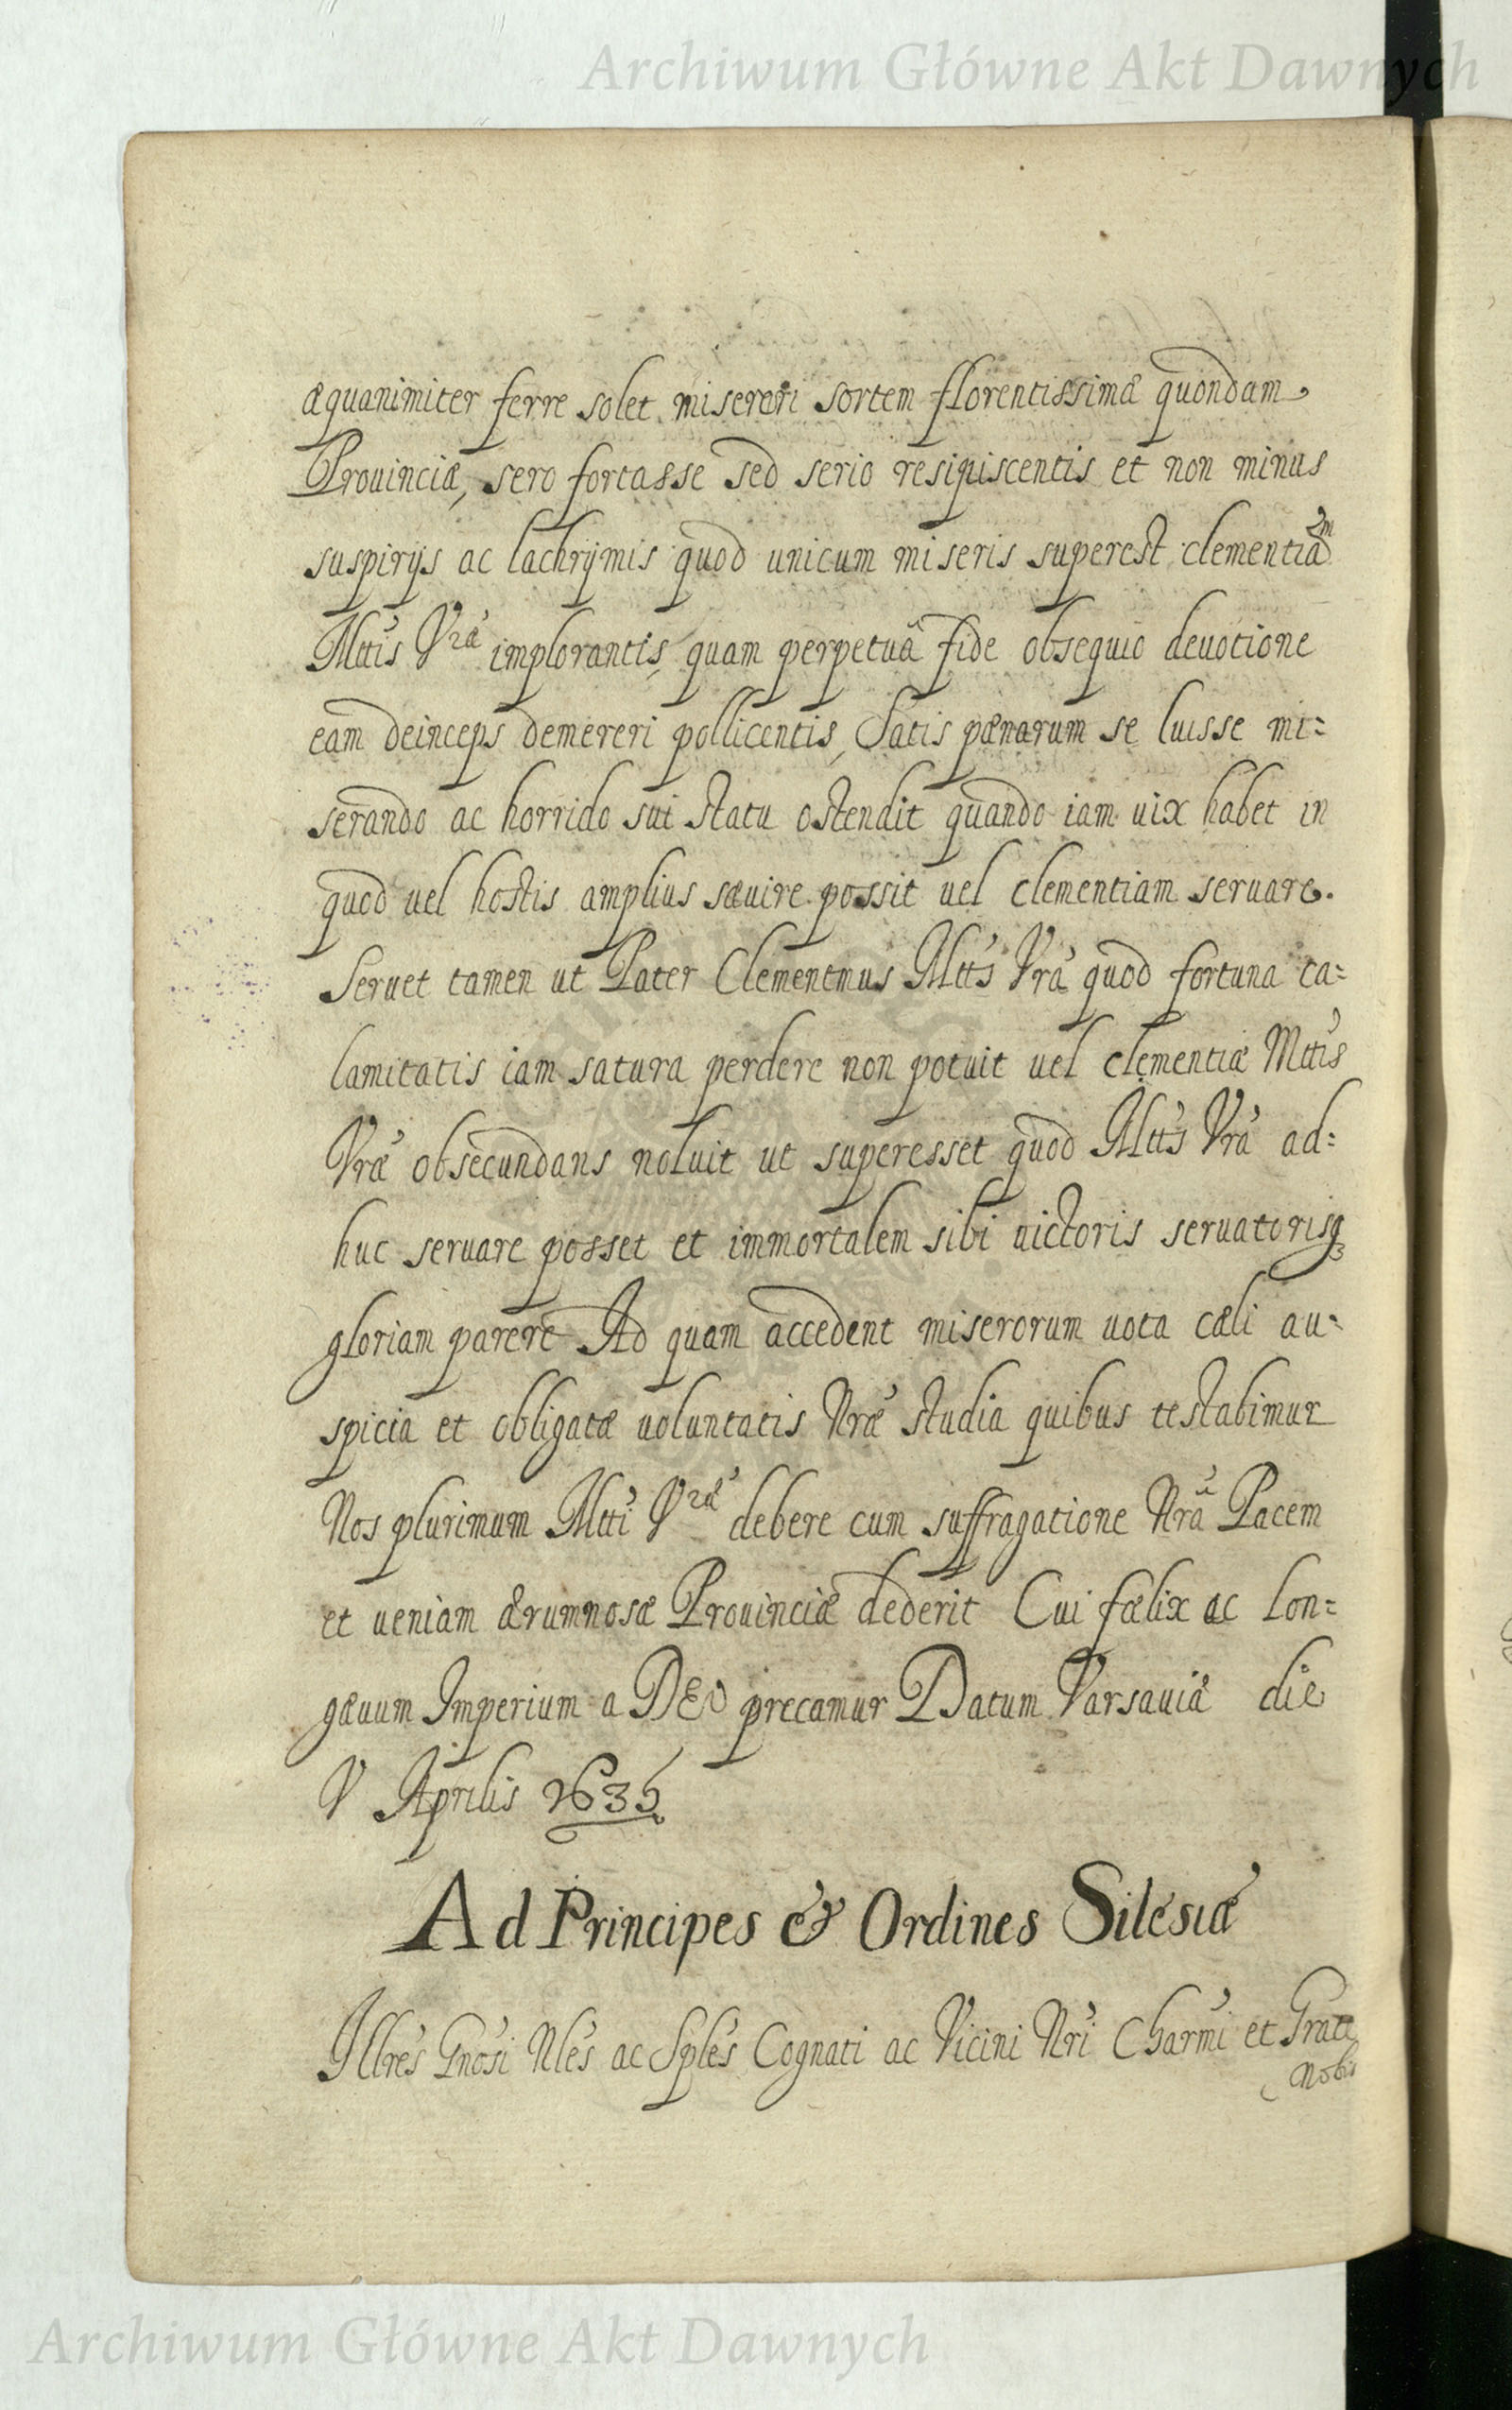 Archiwum Główne Akt Dawnych
æquanimiter ferre solet misereri sortem florentissimæ quondam
Prouinciæ, sero fortasse sed serio resipiscentis et non minus
suspirijs ac lachrÿmis quod unicum miseris superest clementiam
Mttis Vræ implorantis, quam perpetuâ fide obsequio deuotione
eam deinceps demereri pollicentis, Satis pænarum se luisse mi=
serando ac horrido sui statu ostendit quando iam uix habet in
quod uel hostis amplius sæuire possit uel clementiam seruare.
Seruet tamen ut Pater Clementmus Mtts Vrá quod fortuna ca=
lamitatis iam satura perdere non potuit uel clementiæ Mttis
Vræ obsecundans noluit ut superesset quod Mtts Vrá ad=
huc seruare posset et immortalem sibi uictoris seruatorisq3
gloriam parere Ad quam accedent miserorum uota cæli au=
spicia et obligatæ uoluntatis Nræ studia quibus testabimur
Nos plurimum Mtti Vræ debere cum suffragatione Nrâ Pacem
et ueniam ærumnosæ Prouinciæ dederit Cui fælix ac lon=
gæuum Imperium a DEO precamur Datum Varsauiæ die
V Aprilis 1635
Ad Principes & Ordines Silesiæ
Illres Gnosi Nles ac Sples Cognati ac Vicini Nri Charmi et Gratt
Nobis
Archiwum Główne Akt Dawnych